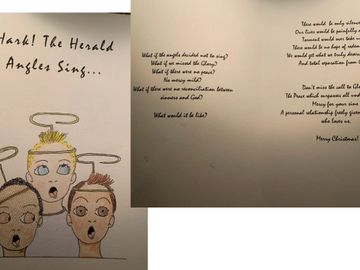 Hark! The Herald
Angles Sing...
What if the angels decided not to sing?
What if we missed the Glory?
What if there were no peace?
No mercy mild?
What if there were no reconciliation between
sinners and God?
What would it be like?
There would be only silence
Our lives would be painfully
Torment would over take
There would be no hopes of
We would get what we truly
And total separation from
Don't miss the call to
The Peace which surpasses all
Mercy for your sins
A personal relationship freely
who loves us.
Merry Christmas!